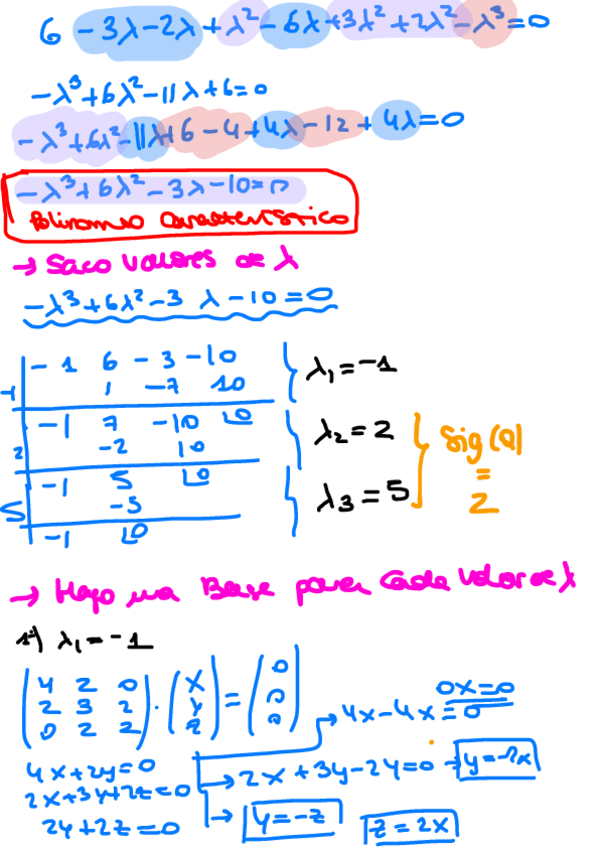 6 -3λ-2λ+λ²-6λ+3λ²+2λ²-λ³=0
-λ³+6λ²-11λ+6=0
-λ³+6λ²-11λ+6-4+4λ-12+4λ=0
-λ³+6λ²-3λ-10=0
Polinomio Característico
→ Saco valores de λ
-λ³+6λ²-3λ-10=0
-1 6 -3 -10
-1 1 -7 10
λ₁=-1
-1 7 -10 0
2 -2 10
λ₂=2
-1 5 0
5 -5
λ₃=5
-1 0
Sig(Q)
=
2
→ Hago una Base para cada valor de λ
1º) λ₁=-1
(4 2 0
2 3 2
0 2 2) · (x
y
z) = (0
0
0)
0x=0
→ 4x-4x=0
4x+2y=0
→ 2x+3y-2y=0 → y=-2x
2x+3y+2z=0
2y+2z=0
→ y=-z
z=2x